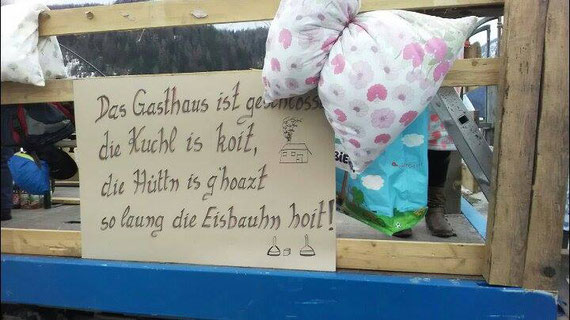 Das Gasthaus ist geschloss
die Kuchl is koit,
die Hüttn is g'hoazt
so laung die Eisbauhn hoit!